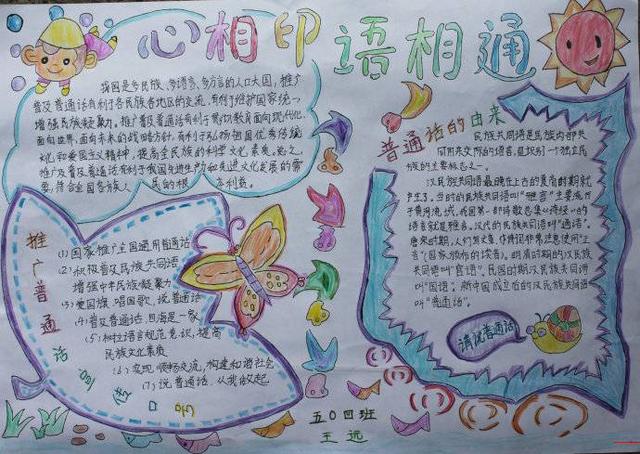 心相印 语相通
我国是多民族、多语言、多方言的人口大国，推广
普及普通话有利于各民族各地区的交流，有利于维护国家统一
增强民族凝聚力。推广普及普通话有利于贯彻教育面向现代化，
面向世界，面向未来的战略方针，有利于弘扬祖国优秀传统
文化和爱国主义精神，提高全民族的科学文素质。总之，
推广及普通话有利于我国先进生产力和先进文化发展的需
要，符合全国各族人民的根
利益。
推广普通话宣传口号
(1)国家推广全国通用普通话
(2)积极普及民族共同语
增强中华民族凝聚力
(3)爱国旗，唱国歌，说普通话
(4)普及普通话，四海是一家
(5)树立语言规范意识，提高
民族文化素质
(6)实现顺畅交流，构建和谐社会
(7)说普通话，从我做起
普通话的由来
民族共同语是民族内部共
同用来交际的语言，是识别一个独立民
族的主要标志之一。
汉民族共同语最晚在上古的夏商时期就
产生了。当时的民族共同语叫"雅言"主要流行
于黄河流域，我国第一部诗歌总集《诗经》的
语言就是雅言。汉代的民族共同语叫"通语"。
唐宋时期，人们写文章、作诗词非常注意使用"正
音"(国家颁布的读音)。明清时期的汉民族
共同语叫"官话"。民国时期汉民族共同语
叫"国语"。新中国成立后的汉民族共同语
叫"普通话"。
请说普通话
五0四班
王远